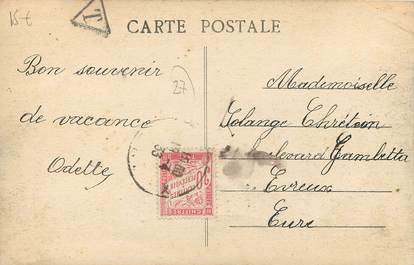 15 €
T
CARTE POSTALE
27
Bon souvenir
de vacance
Odette
Mademoiselle
Solange Chrétien
boulevard Gambetta
Evreux
Eure